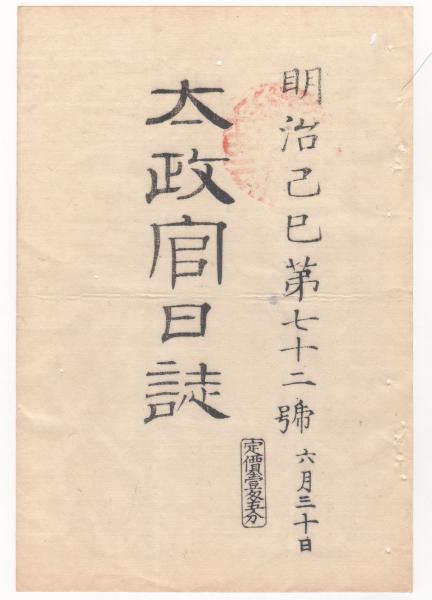 明治己巳第七十二號 六月三十日
太政官日誌
定價壹匁五分